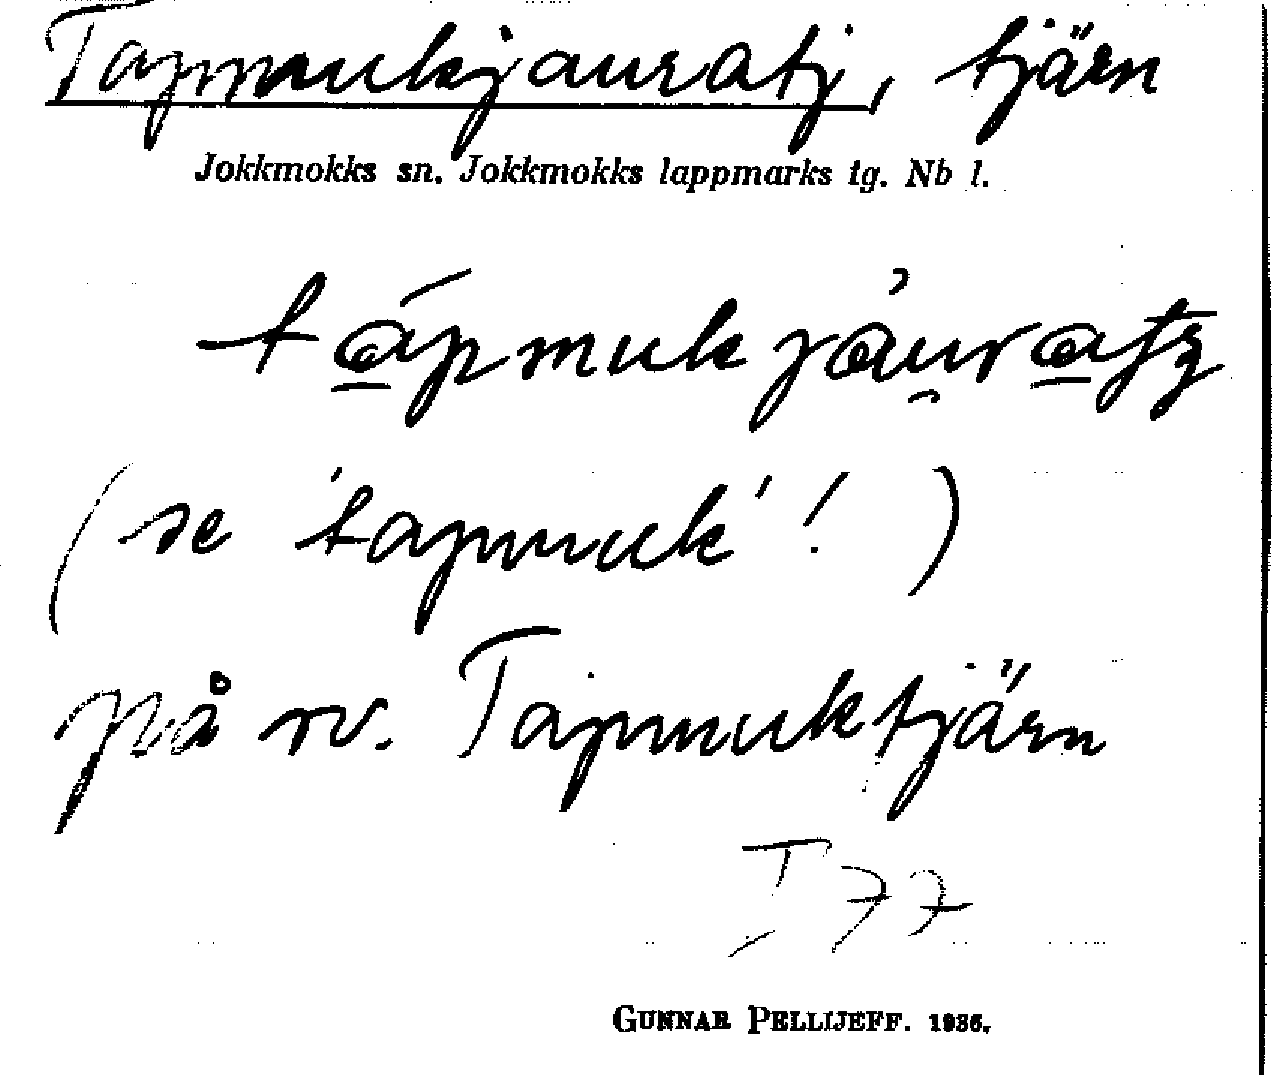 Tapmukjauratj, tjärn
Jokkmokks sn. Jokkmokks lappmarks tg. Nb l.
tápmukjau̯ratʒ
(se 'tapmuk'!)
på sv. Tapmuktjärn
I 77
GUNNAR PELLIJEFF. 1936.